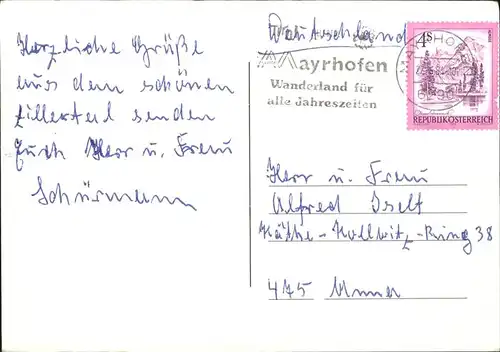 Herzliche Grüße
aus dem schönen
Zillertal senden
Euch Herr u. Frau
Schürmann
Deutschland
Mayrhofen
Wanderland für
alle Jahreszeiten
MAYRHOFEN
4S
REPUBLIK ÖSTERREICH
Herr u. Frau
Alfred Iselt
Käthe-Kollwitz-Ring 38
475 Unna